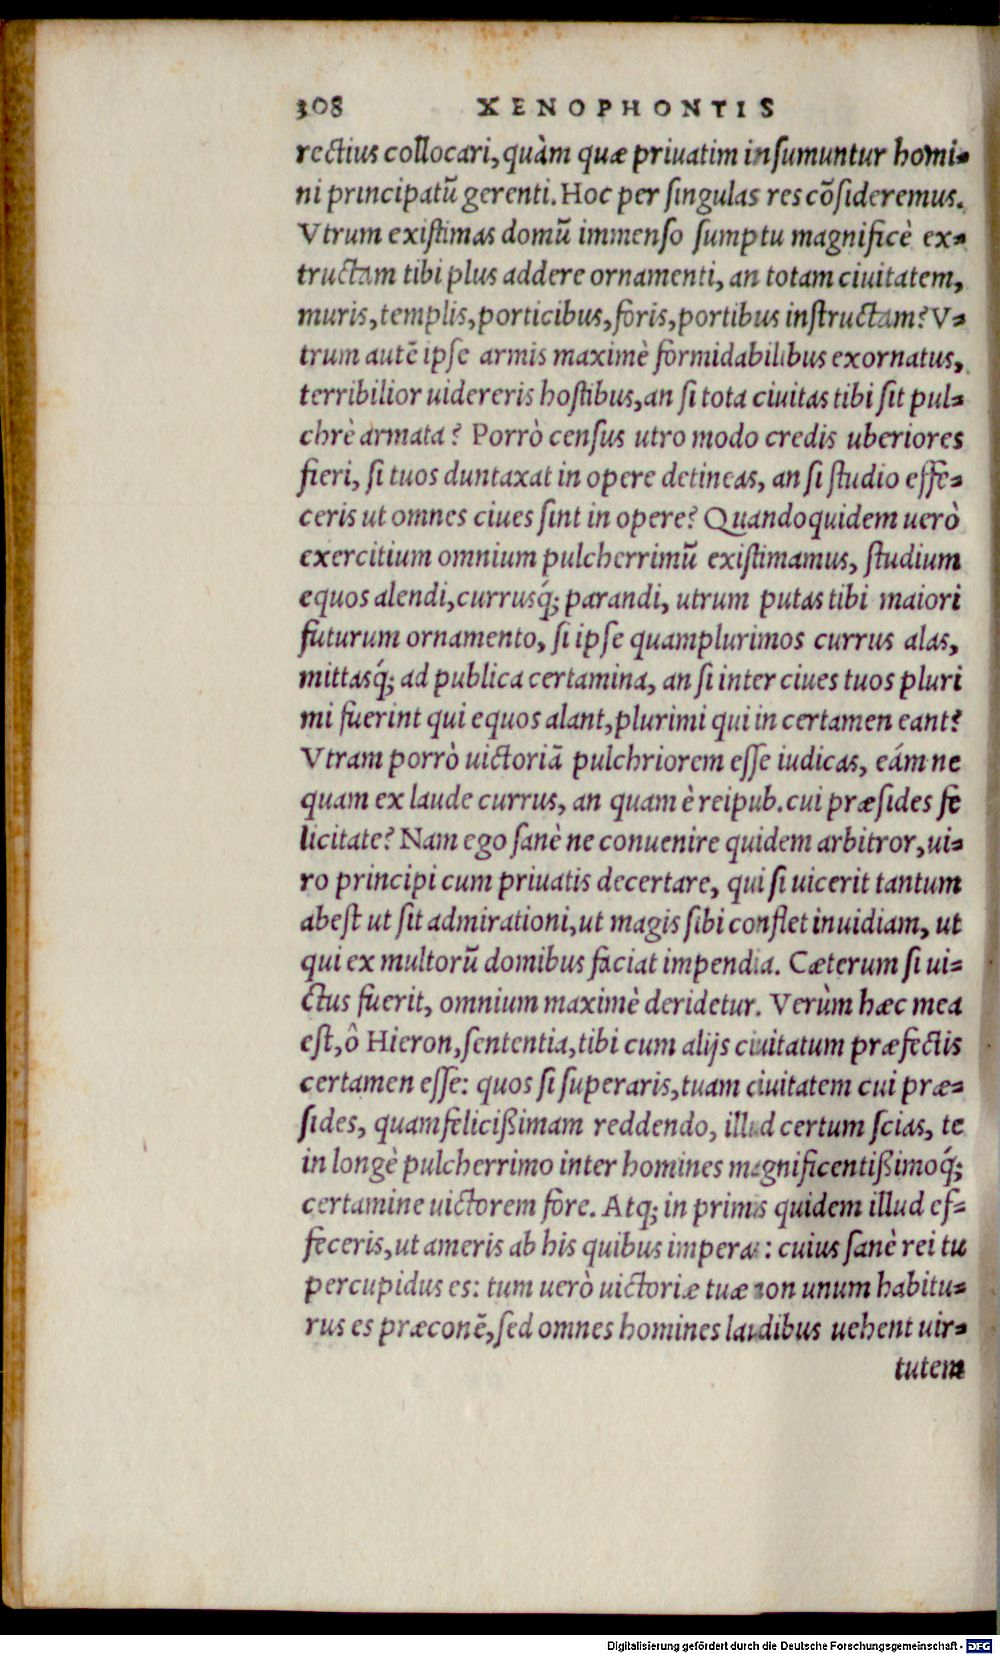 308 XENOPHONTIS
rectius collocari, quàm quæ priuatim insumuntur homi-
ni principatũ gerenti. Hoc per singulas res cõsideremus.
Vtrum existimas domũ immenso sumptu magnificè ex-
tructam tibi plus addere ornamenti, an totam ciuitatem,
muris, templis, porticibus, foris, portibus instructam? V-
trum autẽ ipse armis maximè formidabilibus exornatus,
terribilior uidereris hostibus, an si tota ciuitas tibi sit pul-
chrè armata? Porrò census utro modo credis uberiores
fieri, si tuos duntaxat in opere detineas, an si studio effe-
ceris ut omnes ciues sint in opere? Quandoquidem uerò
exercitium omnium pulcherrimũ existimamus, studium
equos alendi, currusq́; parandi, utrum putas tibi maiori
futurum ornamento, si ipse quamplurimos currus alas,
mittasq́; ad publica certamina, an si inter ciues tuos pluri
mi fuerint qui equos alant, plurimi qui in certamen eant?
Vtram porrò uictoriã pulchriorem esse iudicas, eám ne
quam ex laude currus, an quam è reipub. cui præsides fe
licitate? Nam ego sanè ne conuenire quidem arbitror, ui-
ro principi cum priuatis decertare, qui si uicerit tantum
abest ut sit admirationi, ut magis sibi conflet inuidiam, ut
qui ex multorũ domibus faciat impendia. Cæterum si ui-
ctus fuerit, omnium maximè deridetur. Verùm hæc mea
est, ô Hieron, sententia, tibi cum alijs ciuitatum præfectis
certamen esse: quos si superaris, tuam ciuitatem cui præ-
sides, quamfelicißimam reddendo, illud certum scias, te
in longè pulcherrimo inter homines magnificentißimoq́;
certamine uictorem fore. Atq; in primis quidem illud ef-
feceris, ut ameris ab his quibus imperas: cuius sanè rei tu
percupidus es: tum uerò uictoriæ tuæ non unum habitu-
rus es præconẽ, sed omnes homines laudibus uehent uir-
tutem
Digitalisierung gefördert durch die Deutsche Forschungsgemeinschaft - DFG